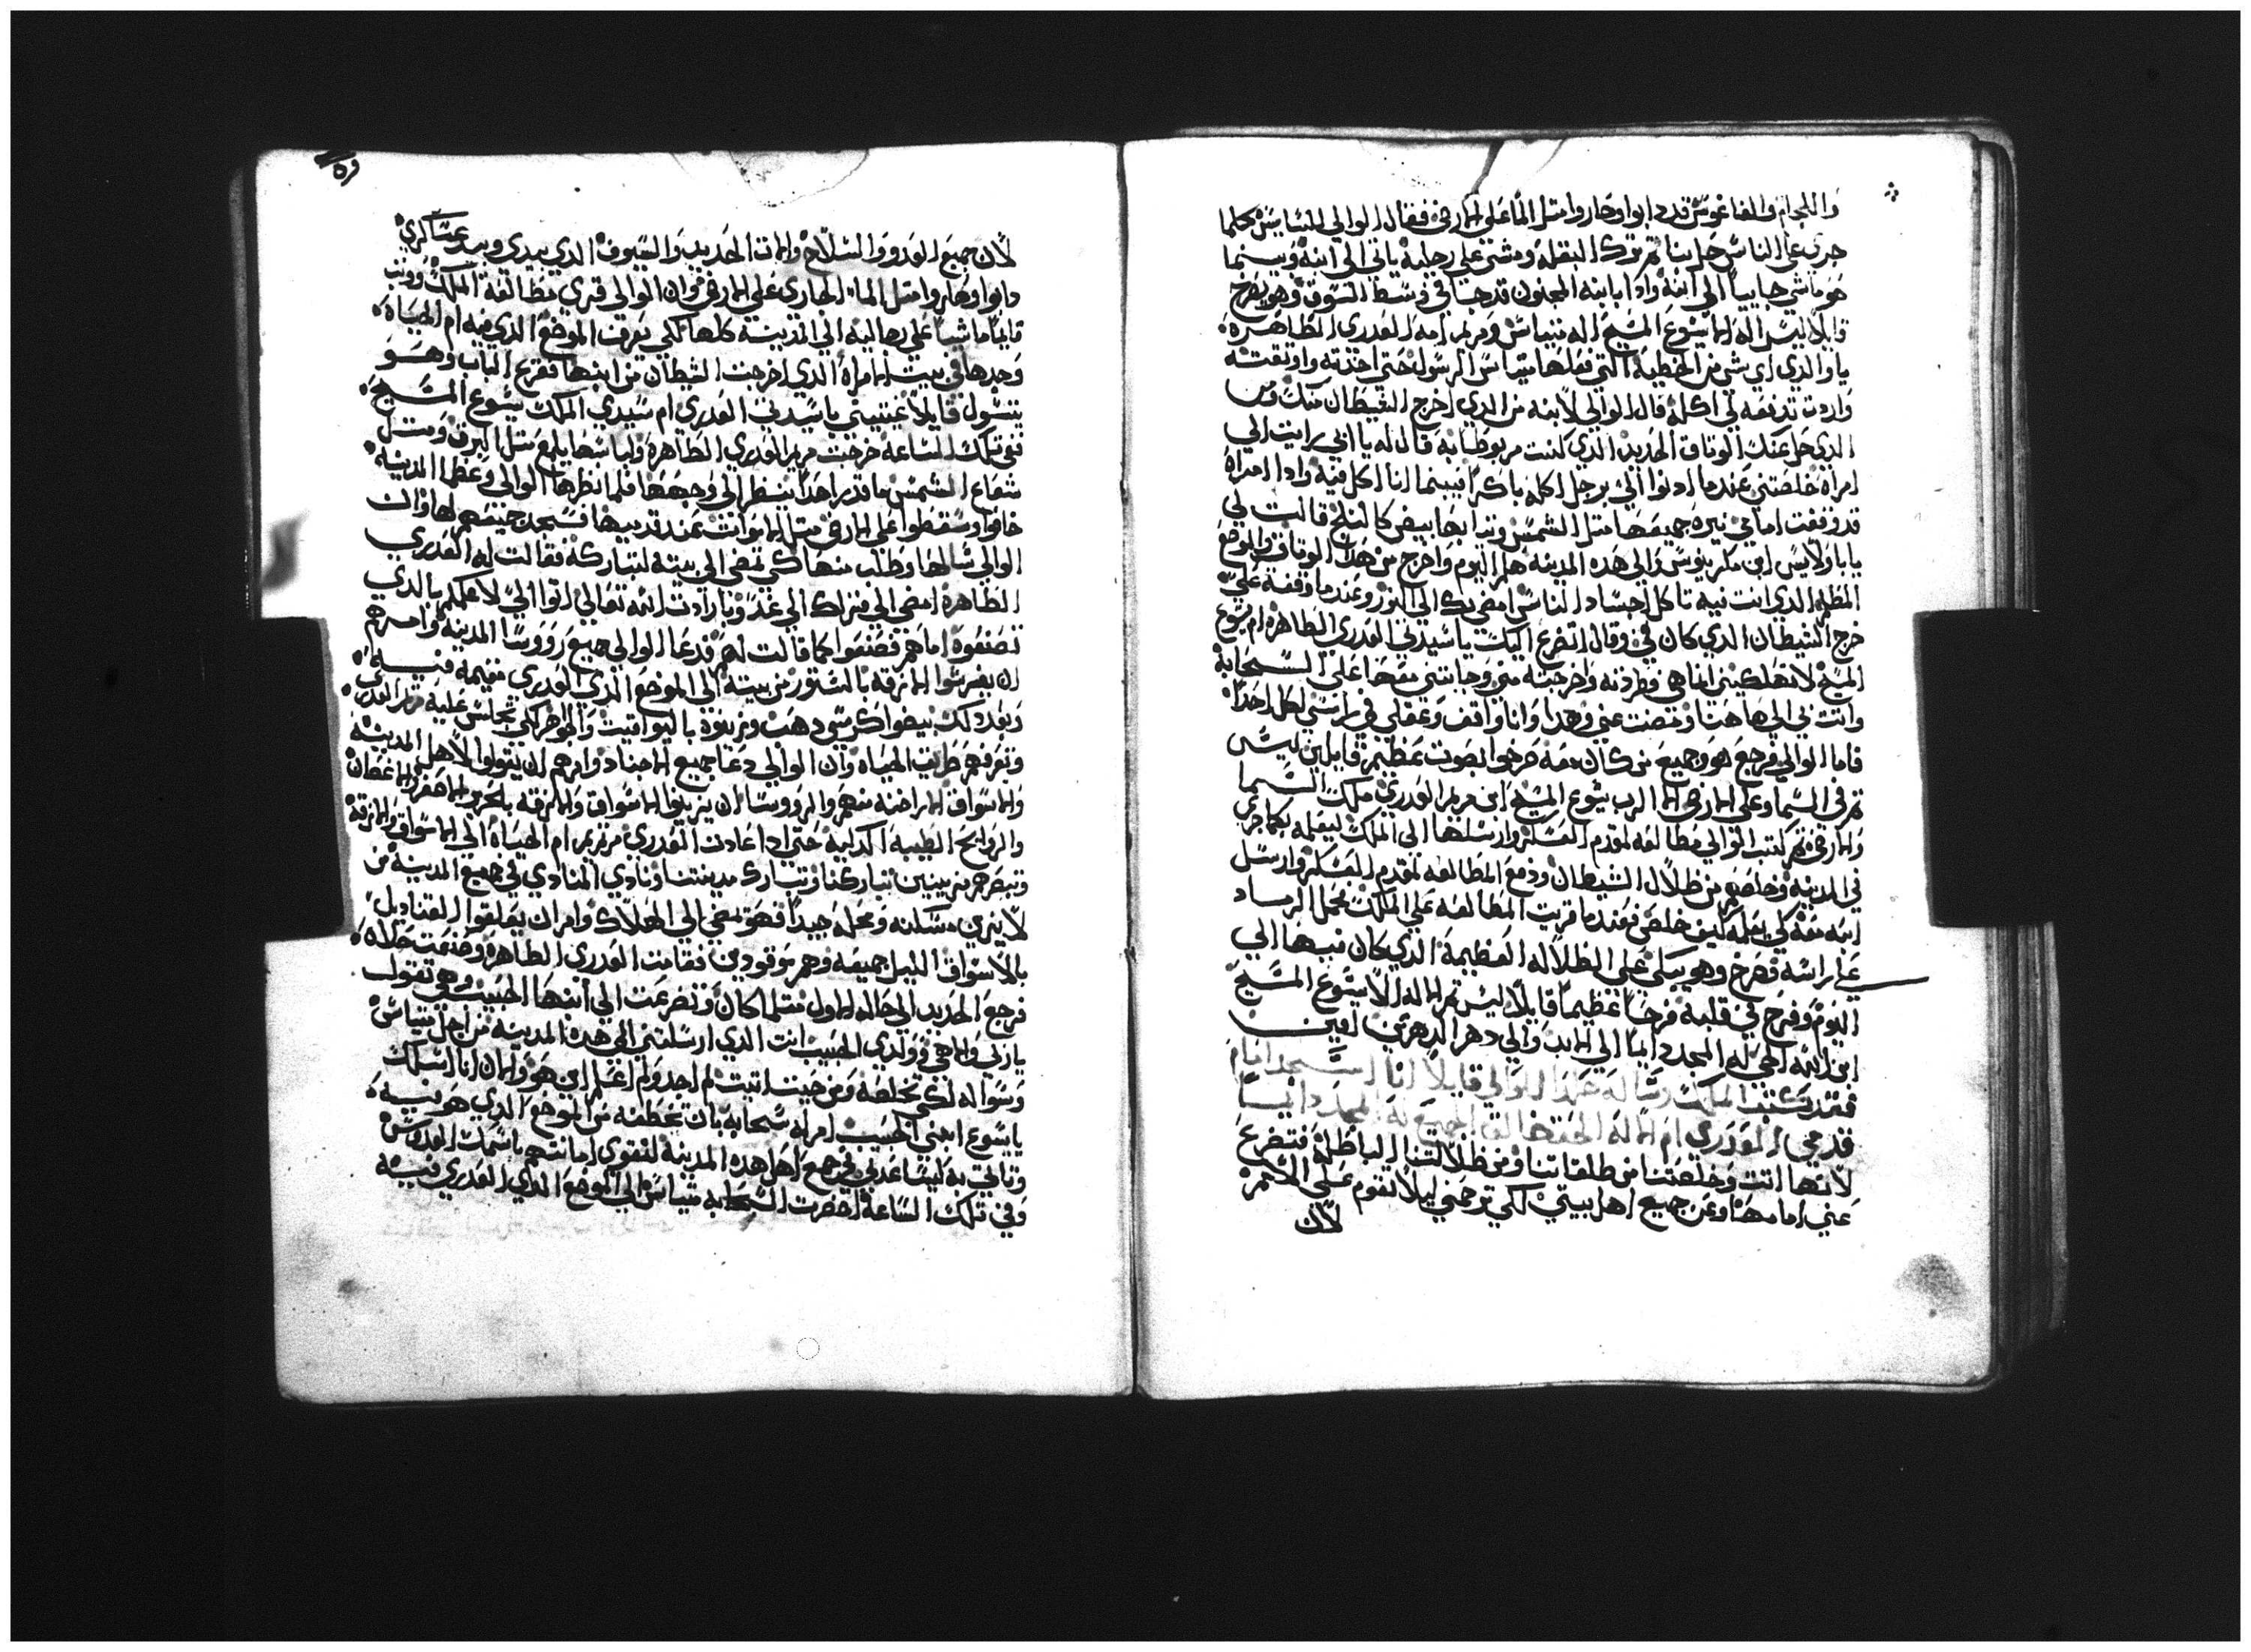 واللجام والفاغوس قد دابوا وصاروا متل الما على الارض فقال الوالي للسايس كلما
جرى على الناس حل بنا ثم ترك البغله ومشي على رجليه ياتي الي ابنه وبينما
هو ماشي جاييا الى ابنه واذا بابنه المجنون قد جا في وسط السوق وهو يصرخ
قايلا ليس اله الا يسوع المسيح اله متياس ومريم امه العدري الطاهره
يا والدي اي شي من الخطيه التي فعلها متياس الرسول حتى اخذته واوثقته
واردت تدفعه لي اكله قال الوالي لابنه من الذي اخرج الشيطان منك ومن
الذي حل عنك الوتاق الحديد الذي كنت مربوطا به قال له يا ابي رايت الي
امراه خلصتني عندما ادنوا الي برجل اكله باكرا فبينما انا اكل فيه واذا امراه
قد وقفت امامي نيره جميعها متل الشمس وتيابها بيض كالثلج قالت لي
يا باولايس ابن مكرينوس والي هده المدينه هلم اليوم واخرج من هدا الوتاق والموضع
المظلم الذي انت فيه تاكل اجساد الناس امضي بك الي النور وعندما وقفه علي
خرج الشيطان الذي كان في وقال اتضرع اليك يا سيدتي العدري الطاهره ام يسوع
المسيح لا تهلكيني فطردته واخرجته مني وجابتني معها على السحابة
وانت بي الي هاهنا ومضت عني وهدا وانا واقف وعقلي في راسي لكل احدا
فاما الوالي فرجع هو وجميع من كان معه صرخوا بصوت عظيم قايلين ليس
ثم في السما وعلي الارض الا الرب يسوع المسيح ابن مريم العدري ملك السما
والارض ثم كتب الوالي مطالعه لمقدم العسكر وارسلها الى الملك ليعلمه بكما جري
في المدينه وخلاصهم من ظلال الشيطان ودفع المطالعه لمقدم العسكر وارسل
ابنه معه لكي يعلمه كيف خلص فعندما قريت المطالعه علي الملك حمل الرماد
علي راسه فصرخ وهو يبكي على الظلاله العظيمة الذي كان فيها الي
اليوم وفرح في قلبه فرحا عظيما قايلا ليس ثم اله الا يسوع المسيح
ابن الله الحي له المجد دايما الي الابد والي دهر الدهرين امين
فعند كتب الملك رساله عهدا للوالي قايلا انا اسجد امام
قدمي العدري ام الاله الحق خالق الجميع له المجد دايما
لانها اتت وخلصتنا من طلغاتنا ومن ظلالتنا الباطلة فتضرع
عني امامها وعن جميع اهل بيتي لكي ترحمني ليلا تقوم علي الامم
لان
لان جميع العدد والسلاح والات الحديد والسيوف الذي بيدي وبيد عساكري
دابوا وصاروا متل الما الجاري على الارض وان الوالي قري مطالعه الملك ووتب
قايما ماشيا علي رجاليه الي المدينة كلها لكي يعرف الموضع الذي فيه ام الحياه
وجدها في بيت الامراه الذي اخرجت الشيطان من ابنها فقرع الباب وهو
يتسول قايلا غيتيني يا سيدتي العدري ام سيدي الملك يسوع المسيح
ففي تلك الساعة خرجت مريم العدري الطاهره ولباسها يلمع متل البرق ومتل
شعاع الشمس ما قدر احدا ينظر الي وجهها فلما نظرها الوالي وعظما المدينه
خافوا وسقطوا على الارض متل الاموات عند قدميها فسجد جميعهم لها وان
الوالي سالها وطلب منها كي تمضي الي بيته لتباركه فقالت له العدري
الطاهرة امضي الي منزلك الي غدا وبارادت الله تعالي اتوا الي لاعلمكم بالذي
تصنعوه امامهم فصنعوا كما قالت لهم فدعا الوالي جميع رووسا المدينه وامرهم
ان يفرشوا الازقه بالستور من بيته الي الموضع الذي العدري مقيمه فيه
وبعد دلك يضعوا كرسي دهب ومزينوه باليواقيت والجواهر لكي تجلس عليه مريم العدري
وتعرفهم طريق الحياه وان الوالي دعا جميع الاجناد وامرهم ان يقولوا لاهل المدينه
والاسواق الاراخنه منهم والرووسا ان يزينوا الاسواق والازقه بالحرير الاصفر والاغصان
والروايح الطيبه الدكيه حتى ادا عادت العدري مرتمريم ام الحياة الي الاسواق والازقه
وتبصرهم مزينين تباركنا وتبارك مدينتنا ونادي المنادي في جميع المدينة من
لا يزين مسكنه ومحله جيدا فهو يمضي الي الهلاك وامر ان يعلقوا القناديل
بالاسواق الليل جميعه وهم موقودين فقامت العدري الطاهره وصنعت صلاه
فرجع الحديد الي حاله الاول متلما كان وتضرعت الي ابنها الحبيب وهي تقول
يا ربي والاهي وولدي الحبيب انت الذي ارسلتني الي هده المدينه من اجل متياس
وسواله لكي تخلصه ومن حيت اتيت لم اجد ولم اعلم اين هو والان انا اسلك
يا يسوع ابني الحبيب امر اد سحابه بان تخطفه من الموضع الذي هو فيه
وتاتي به ليساعدني في جمع اهل هده المدينه لتقوي امانتهم باسمك القدوس
وفي تلك الساعة احضرت السحابه متياس الي الموضع الذي العدري فيه